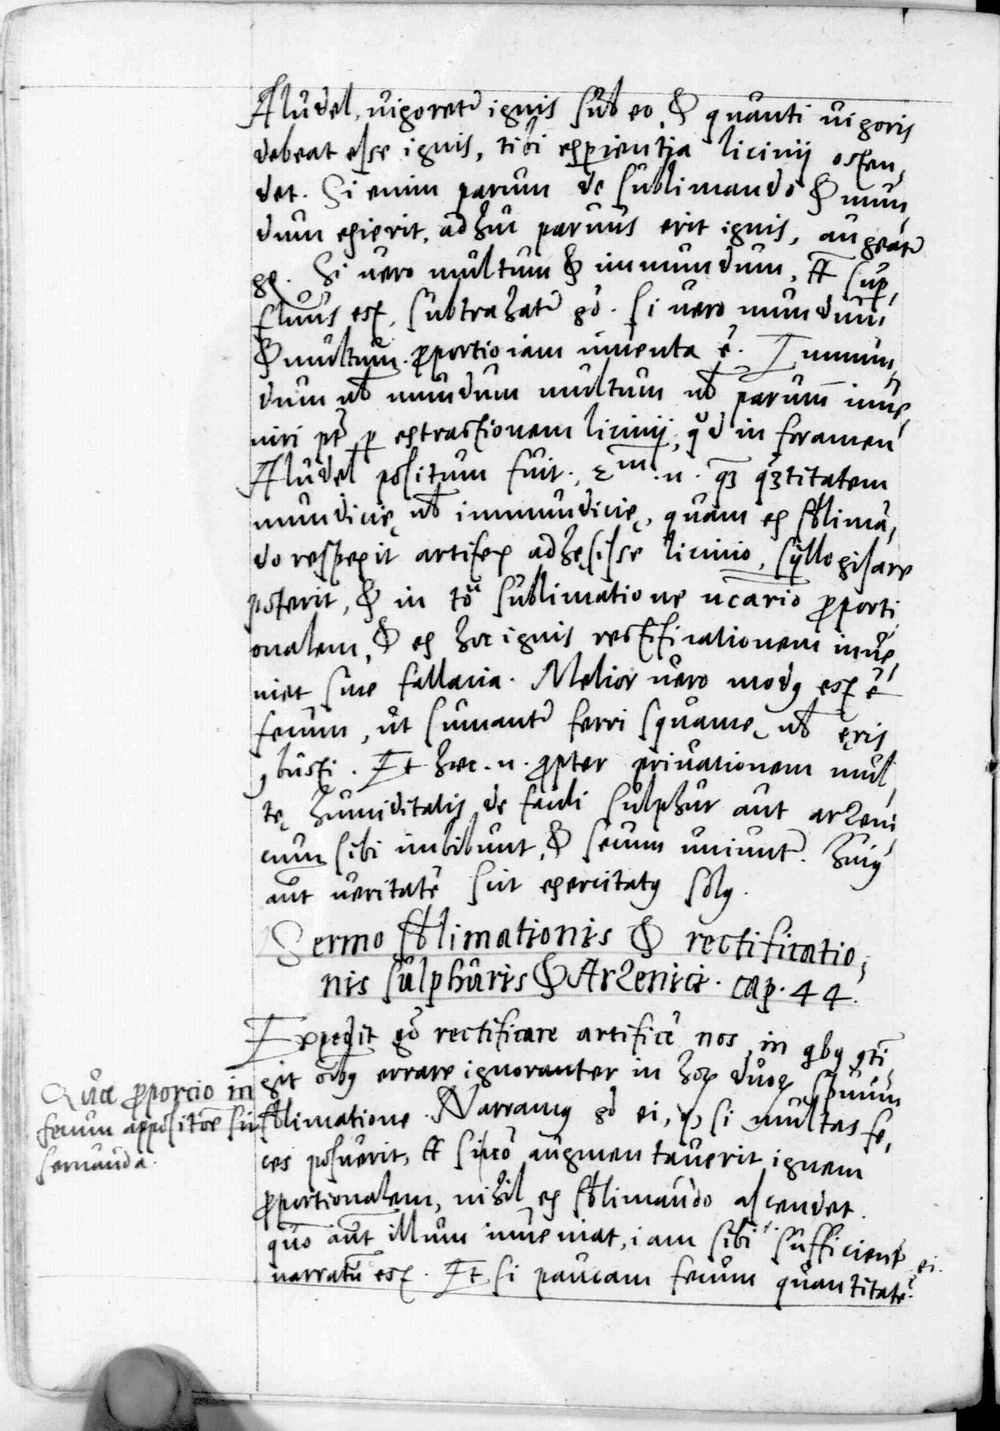 Aludel, uigoretʳ ignis sub eo, & quanti uigoris
debeat esse ignis, tibi experientia licinij osten,
det. Si enim parum de sublimando & mun,
dum exierit, adhuc paruus erit ignis, augeatʳ
gͦ. Si uero multum & immundum, tunc sup,
fluus est, subtrahatʳ gͦ. Si uero mundum
& multum. ꝓportio iam inuenta ē. Immun,
dum uł mundum multum uł parum inue,
niri pt̄ ꝑ extractionem licinij, qd̄ in foramen
Aludel positum fuit. .n. quantitatem
mundicię uł immundicię, quam ex sblimā,
do respexit artifex adhęsisse licinio, syllogisare
poterit, & in tota sublimatione ncario ꝓporti
onalem, & ex hoc ignis rectificationem inue,
niet sine fallacia. Melior uero modꝯ est
fecum, ut sumantʳ ferri squamę uł ęris
ꝯbusti. Et hæc .n. ꝓpter priuationem mul,
tę humiditatis de facili sulphur aut arzeni
cum sibi imbibunt, & secum uniuntʳ. huiꝯ
aūt ueritatē scit exercitatꝯ solꝯ.
Sermo sblimationis & rectificatio,
nis sulphuris & Arzenici. cap. 44.
Expedit gͦ rectificare artificē nos, in qbꝯ ꝯtī
git oībꝯ errare ignoranter in hoꝝ duoꝝ spūum
sblimatione. Narramꝯ gͦ ei, ꝙ si multas fe,
ces posuerit, augmentauerit ignem
ꝓportionalem, nihil ex sblimando ascendet.
quō aūt illum inueniat, iam sibi sufficient ei.
narratū est. Et si paucam fecum quantitatē
Quæ ꝓporcio in
fecum appositōe sit
seruanda.